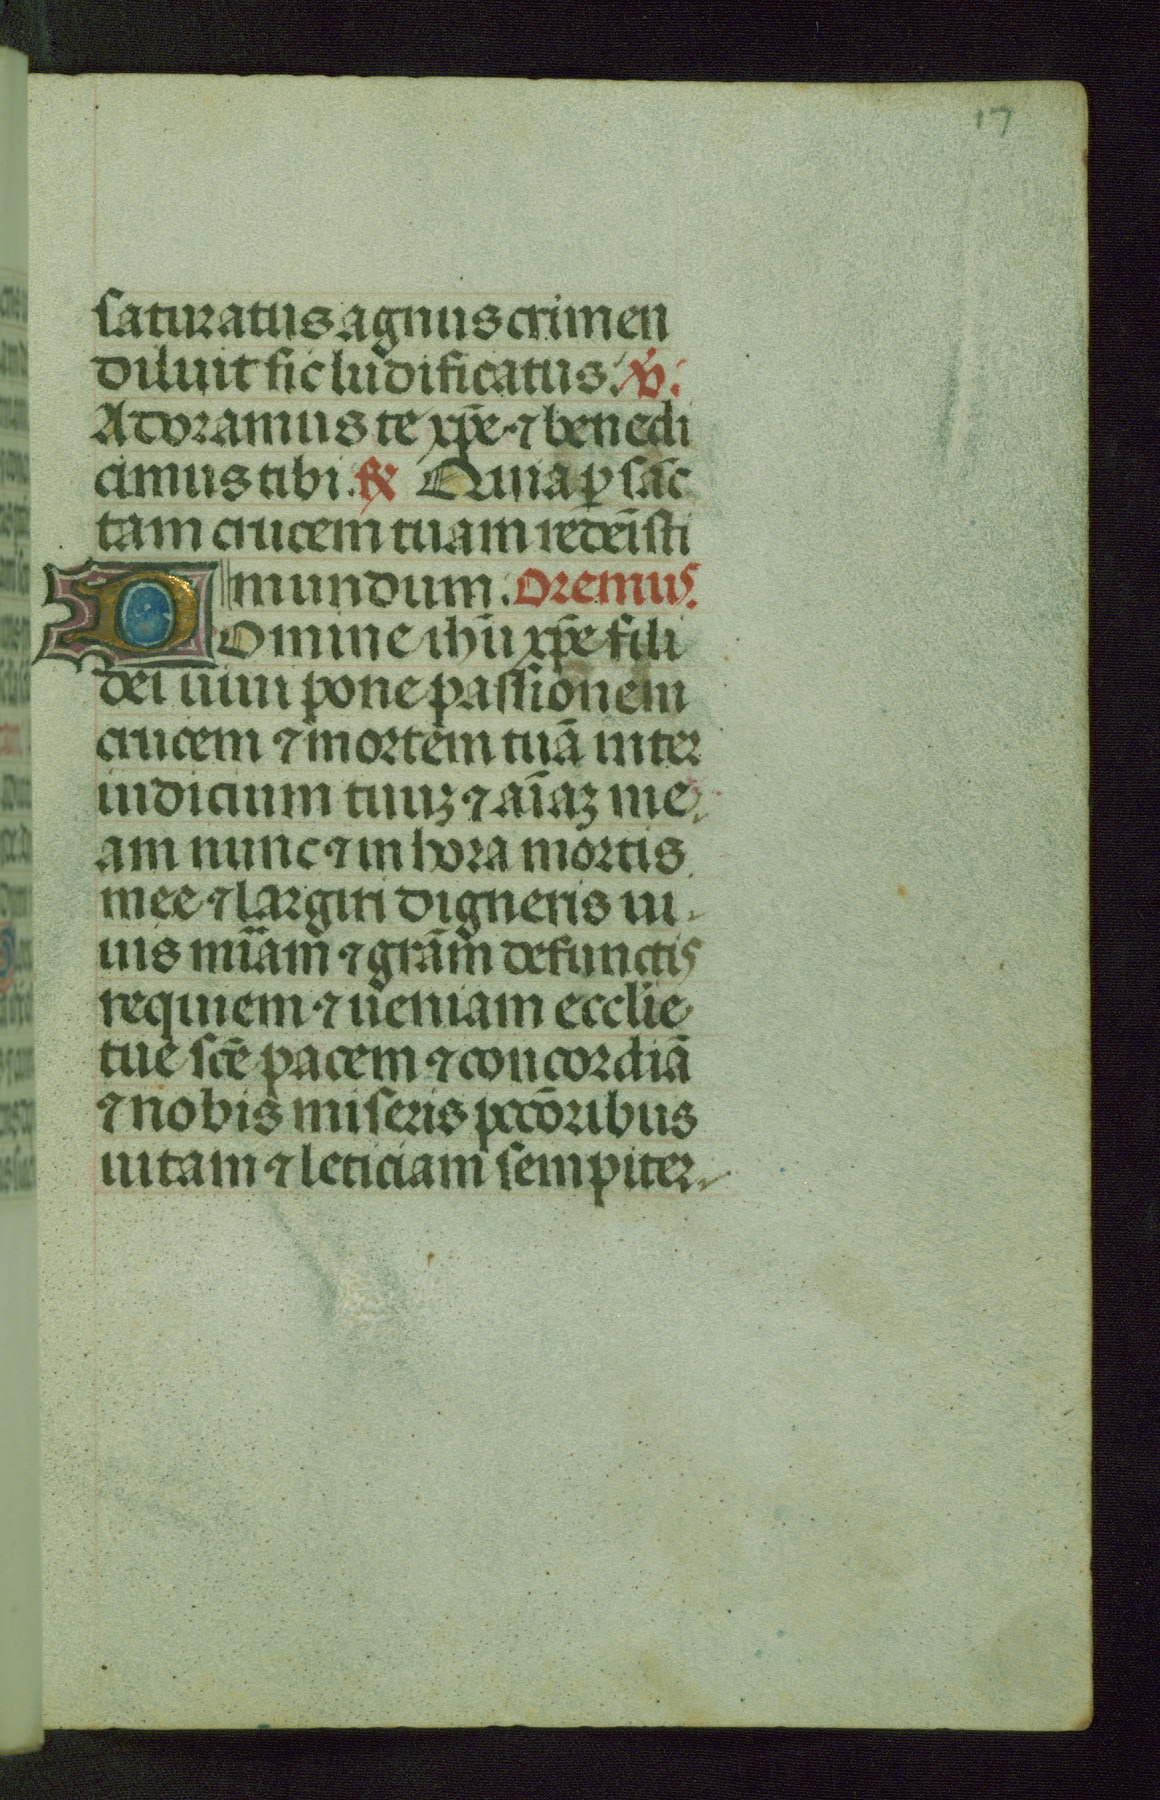 17
saturatus agnus crimen
diluit sic ludificatus. ℣.
Adoramus te xp̄e ⁊ benedi
cimus tibi. ℟ Quia ꝑ sāc
tam crucem tuam redēisti
mundum. Oremus.
Domine ihū xp̄e fili
dei uiui pone passionem
crucem ⁊ mortem tuā inter
iudicium tuuꝫ ⁊ aīaꝫ me
am nunc ⁊ in hora mortis
mee ⁊ largiri digneris ui
uis mīam ⁊ grām defunctis
requiem ⁊ ueniam ecclie
tue scē pacem ⁊ concordiā
⁊ nobis miseris pccōribus
uitam ⁊ leticiam sempiter